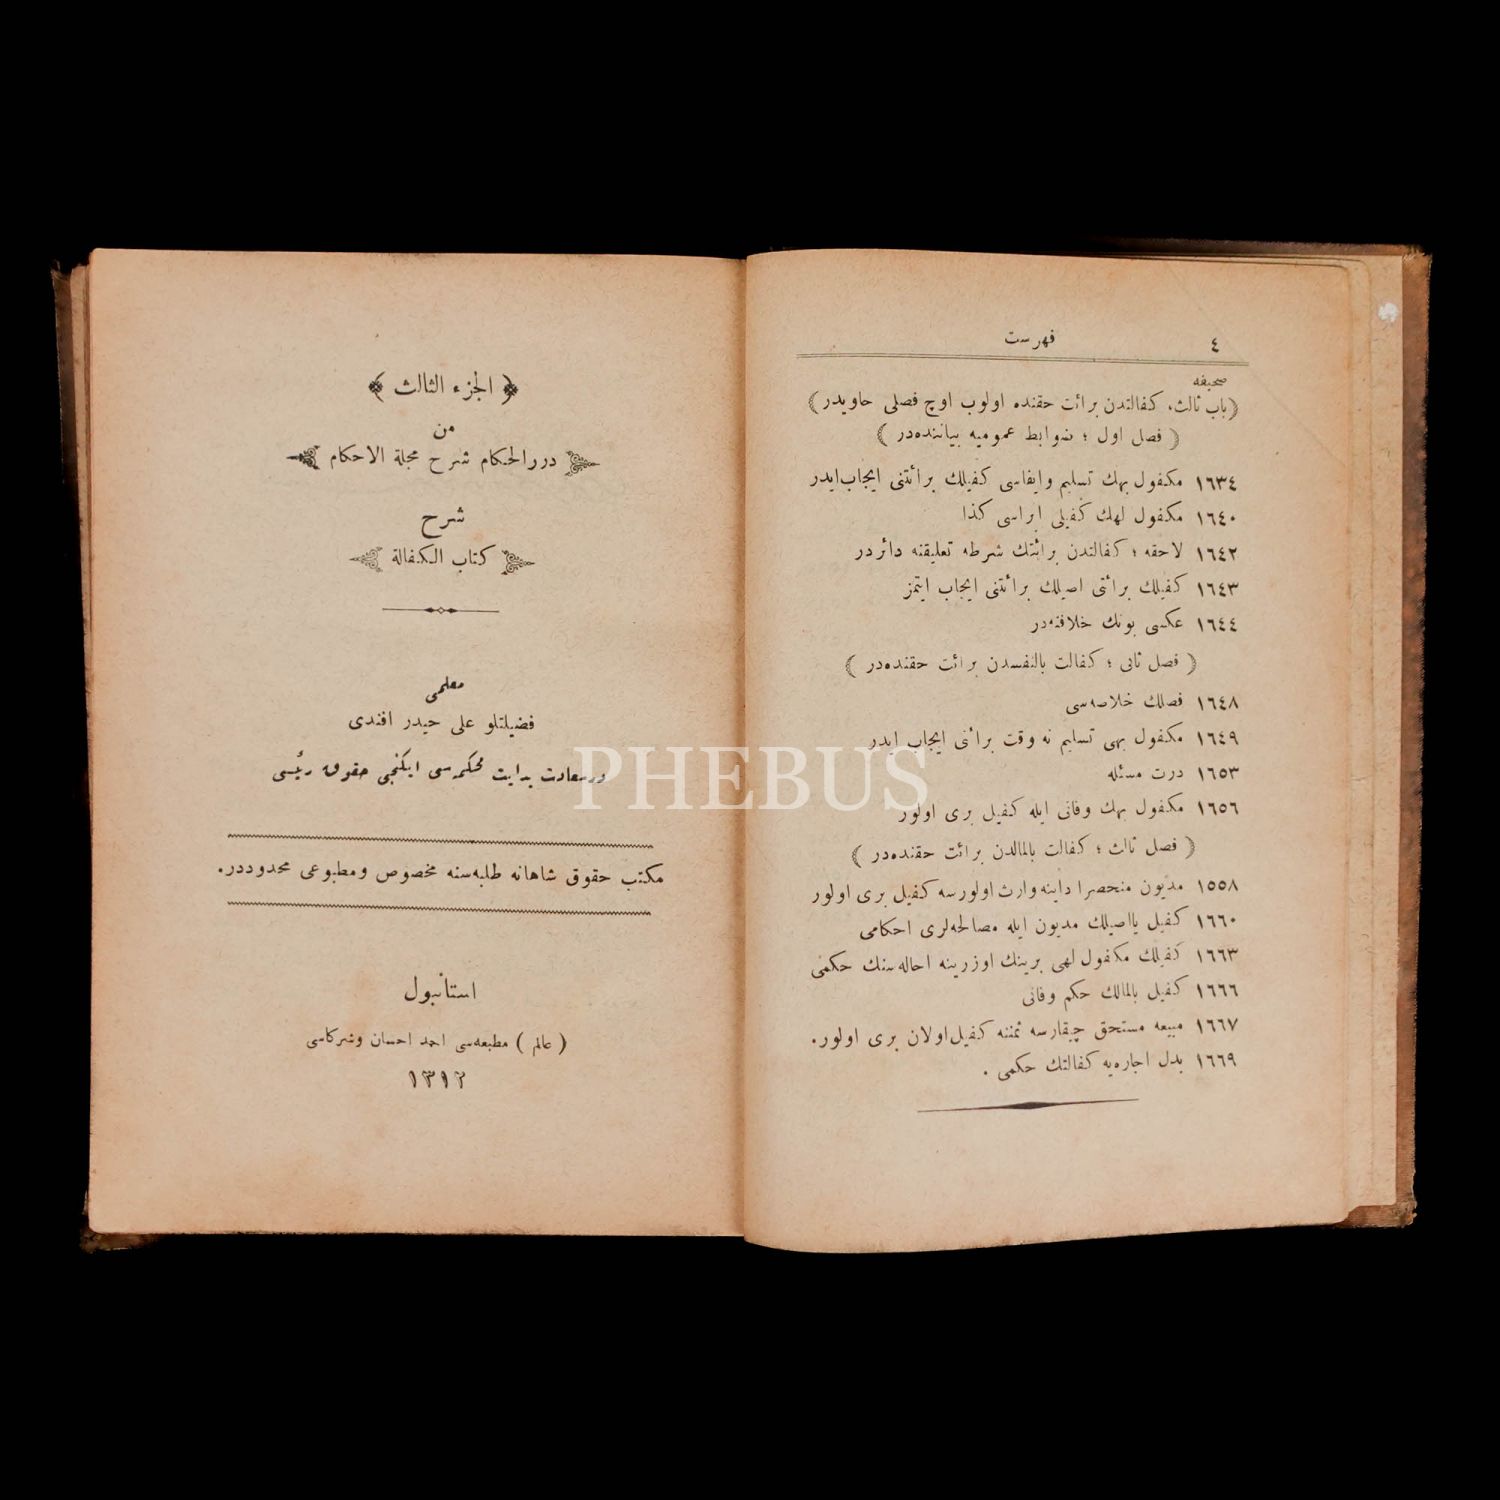 ٤ فهرست
صحيفه
(باب ثالث، كفالتدن برائت حقنده اولوب اوچ فصلی حاويدر)
(فصل اول ؛ ضوابط عموميه بياننده‌در)
١٦٣٤ مكفول بهك تسليم وايفاسی كفيلك برائتنی ايجاب‌ايدر
١٦٤٠ مكفول لهك كفيلی ابراسی كذا
١٦٤٢ لاحقه ؛ كفالتدن برائتك شرطه تعليقنه دائردر
١٦٤٣ كفيلك برائتی اصيلك برائتنی ايجاب ايتمز
١٦٤٤ عكسی بونك خلافنه‌در
(فصل ثانی ؛ كفالت بالنفسدن برائت حقنده‌در)
١٦٤٨ فصلك خلاصه‌سی
١٦٤٩ مكفول بهی تسليم نه وقت برائنی ايجاب ايدر
١٦٥٣ درت مسئله
١٦٥٦ مكفول بهك وفاتی ايله كفيل بری اولور
(فصل ثالث ؛ كفالت بالمالدن برائت حقنده‌در)
١٥٥٨ مديون منحصرا داينه وارث اولورسه كفيل بری اولور
١٦٦٠ كفيل يااصيلك مديون ايله مصالحه‌لری احكامی
١٦٦٣ كفيلك مكفول لهی برينك اوزرينه احاله‌سنك حكمی
١٦٦٦ كفيل بالمالك حكم وفاتی
١٦٦٧ مبيعه مستحق چيقارسه ثمننه كفيل‌اولان بری اولور.
١٦٦٩ بدل اجاره‌يه كفالتك حكمی .
﴿ الجزء الثالث ﴾
من
دررالحكام شرح مجلة الاحكام
شرح
كتاب الكفالة
معلمی
فضيلتلو علی حيدر افندی
درسعادت بدايت محكمه‌سی ايكنجی حقوق رئيسی
مكتب حقوق شاهانه طلبه‌سنه مخصوص ومطبوعی محدوددر.
استانبول
(عالم) مطبعه‌سی احمد احسان وشركاسی
١٣١٢
PHEBUS